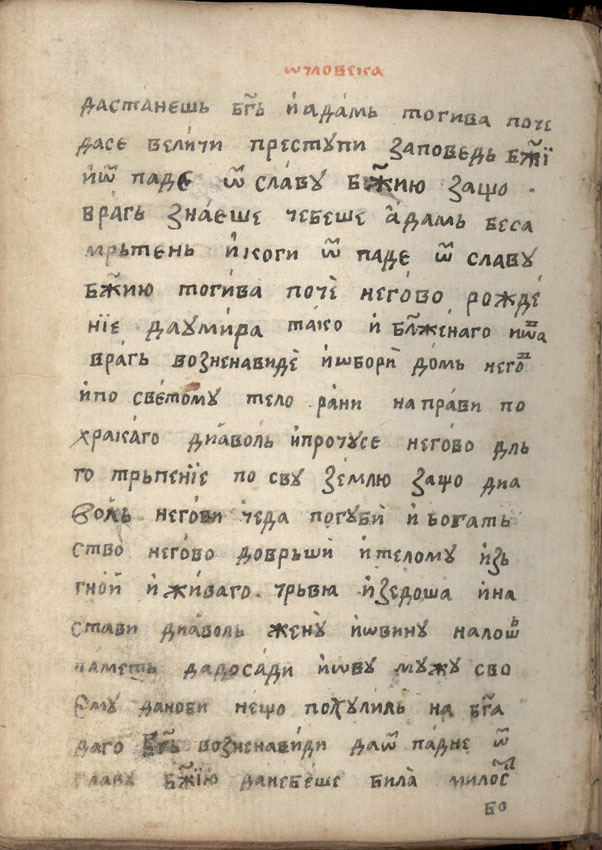 ѡчловека
дастанешь бг҃ь и҆ адамь тогива поче
дасе величи преступи заповедь бж҃їи
и҆ ѿ падє ѿ славу бж҃ию защо
врагь знаєше чебеше а҆дамь беса
мрьтень и҆ коги ѿ падє ѿ славу
бж҃ию тогива почѐ негово рожде́
нїе даумира тако и҆ бл҃женаго иѡва
врагь возненавиде и҆ѡбори домь негов
и҆по светому тело рани направи по
хракаго диаволь и҆протусе негово дль
го трьпенїе по сву землю защо диа
воль негови чеда погуби и҆ богать
ство негово доврьши и҆ телому и҆зь
гной и҆ живаго трьвїа и҆зедоша и҆на
стави диаволь жену и҆ѡвину налошь
паметь дадосади и҆ѡву мужу сво
ему даноби нещо похулиль на бг҃а
даго бг҃ь возненавиди даѿ падне ѿ
славу бж҃їю данебеше била милост
бо